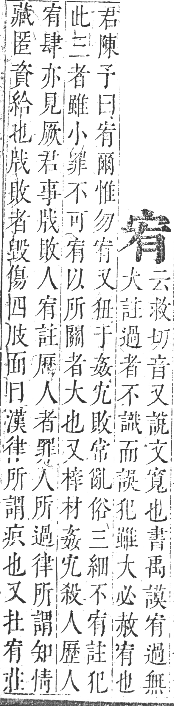 宥
云救切音又說文寬也書禹謨宥過無
大註過者不識而誤犯雖大必赦宥也
君陳予曰宥爾惟勿宥又狃于姦宄敗常亂俗三細不宥註犯
此三者雖小罪不可宥以所關者大也又梓材姦宄殺人歷人
宥肆亦見厥君事戕敗人宥註歷人者罪人所過律所謂知情
藏匿資給也戕敗者毀傷四肢面目漢律所謂疻也又扗宥莊